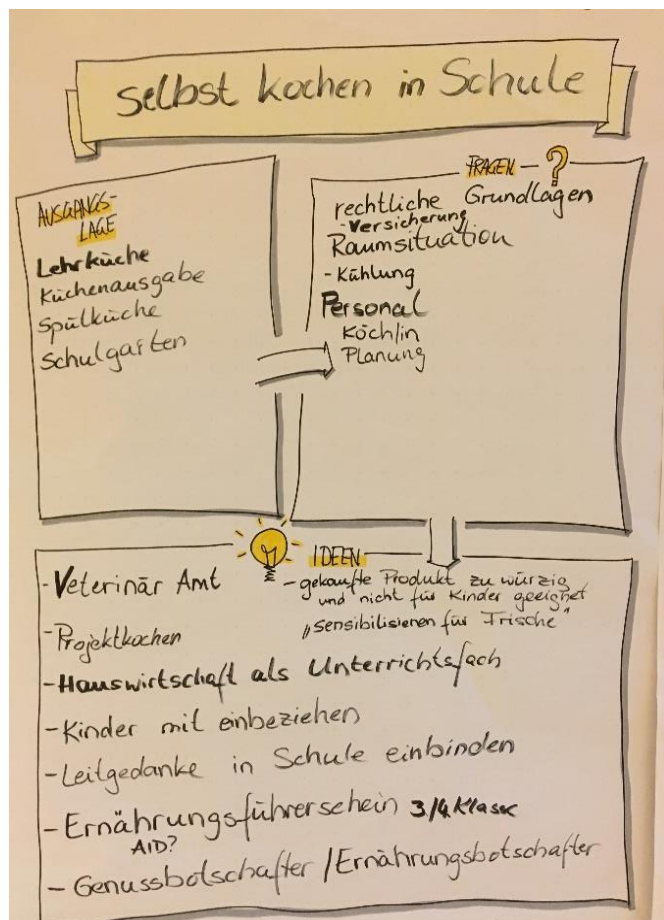 Selbst kochen in Schule
AUSGANGS-
LAGE
Lehrküche
Küchenausgabe
Spülküche
Schulgarten
FRAGEN - ?
rechtliche Grundlagen
- Versicherung
Raumsituation
- Kühlung
Personal
Köch/in
Planung
IDEEN
- Veterinär Amt
- gekaufte Produkt zu würzig
und nicht für Kinder geeignet
„sensibilisieren für Frische"
- Projektkochen
- Hauswirtschaft als Unterrichtsfach
- Kinder mit einbeziehen
- Leitgedanke in Schule einbinden
- Ernährungsführerschein 3/4 Klasse
AID?
- Genussbotschafter / Ernährungsbotschafter